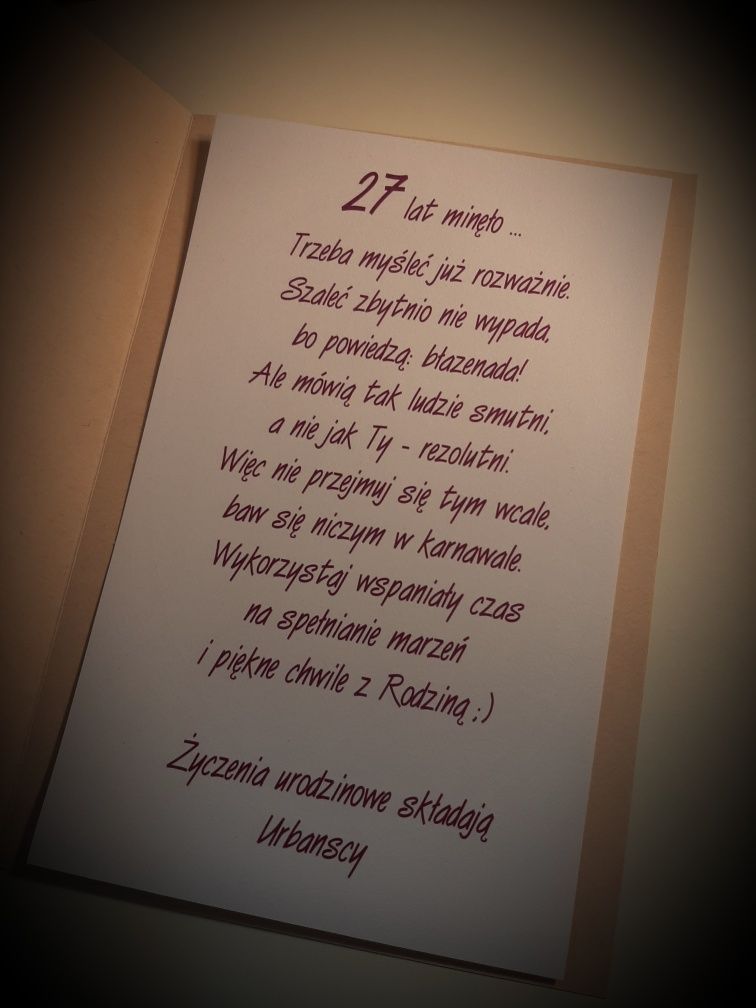 27 lat minęło ...
Trzeba myśleć już rozważnie.
Szaleć zbytnio nie wypada,
bo powiedzą: błazenada!
Ale mówią tak ludzie smutni,
a nie jak Ty - rezolutni.
Więc nie przejmuj się tym wcale,
baw się niczym w karnawale.
Wykorzystaj wspaniały czas
na spełnianie marzeń
i piękne chwile z Rodziną ;)
Życzenia urodzinowe składają
Urbanscy